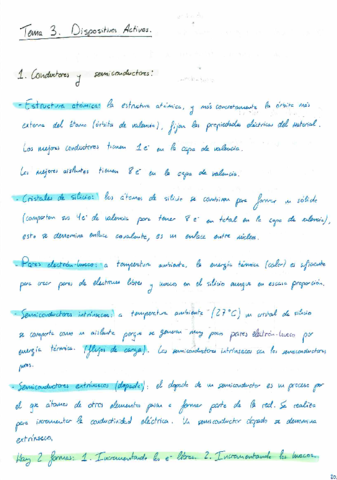 Tema 3. Dispositivos Activos.
1. Conductores y semiconductores:
- Estructura atómica: la estructura atómica, y más concretamente la órbita más
externa del átomo (órbita de valencia), fijan las propiedades eléctricas del material.
Los mejores conductores tienen 1e⁻ en la capa de valencia.
Los mejores aislantes tienen 8e⁻ en la capa de valencia.
- Cristales de silicio: los átomos de silicio se combinan para formar un sólido
(comparten sus 4e⁻ de valencia para tener 8e⁻ en total en la capa de valencia),
esto se denomina enlace covalente, es un enlace entre
- Pares electrón-hueco: a temperatura ambiente, la energía térmica (calor) es suficiente
para crear pares de electrones libres y huecos en el silicio aunque en escasa proporción.
- Semiconductores intrínsecos: a temperatura ambiente (27°C) un cristal de silicio
se comporta como un aislante porque se generan muy pocos pares electrón-hueco por
energía térmica. (flujos de carga). Los semiconductores intrínsecos son los semiconductores
puros.
- Semiconductores extrínsecos (dopado): el dopado de un semiconductor es un proceso por
el que átomos de otros elementos pasan a formar parte de la red. Se realiza
para incrementar la conductividad eléctrica. Un semiconductor dopado se denomina
extrínseco.
Hay 2 formas: 1. Incrementando los e⁻ libres 2. Incrementando los huecos.